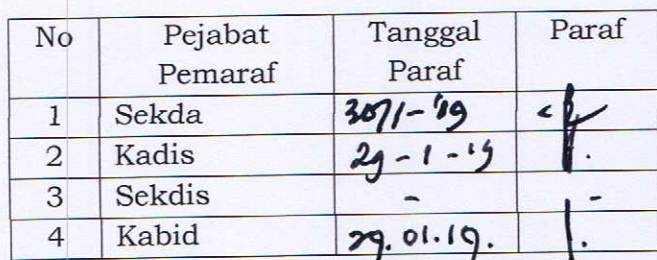 No Pejabat Pemaraf Tanggal Paraf Paraf
1 Sekda 30/1-'19
2 Kadis 29-1-'19
3 Sekdis - -
4 Kabid 29.01.19.